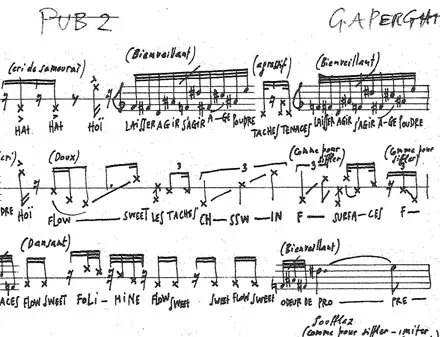 PUB 2 G APERGHI
(cri de samouraï) (Bienveillant) (agressif) (Bienveillant)
HAT HAT HOÏ LAISSER AGIR S'AGIR A-GE POUDRE TACHES TENACES LAISSER AGIR S'AGIR A-GE POUDRE
cri) (Doux) (Comme pour siffler) (Comme pour siffler)
3 3 3
DRE HOÏ FLOW SWEET LES TACHES CH — SSW — IN F — SURFA-CES F —
(Dansant) (Bienveillant)
ACES FLOW SWEET FOLI - MINE FLOW SWEET SWEET FLOW SWEET ODEUR DE PRO — PRE —
Soufflez
(comme pour siffler - imiter